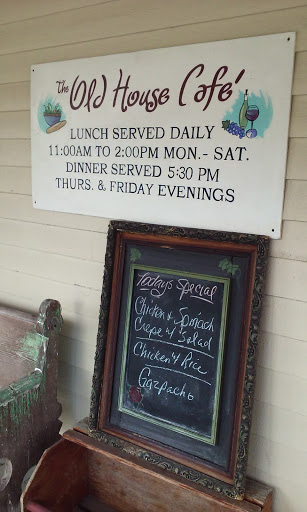 The Old House Café
LUNCH SERVED DAILY
11:00AM TO 2:00PM MON.- SAT.
DINNER SERVED 5:30 PM
THURS. & FRIDAY EVENINGS
Todays Special
Chicken & Spinach
Crepe w/ Salad
Chicken & Rice
Gazpacho